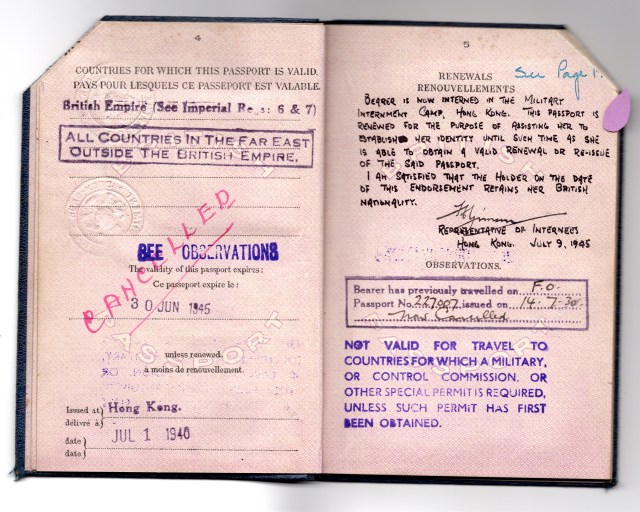 4
COUNTRIES FOR WHICH THIS PASSPORT IS VALID.
PAYS POUR LESQUELS CE PASSEPORT EST VALABLE.
British Empire (See Imperial Regs: 6 & 7)
ALL COUNTRIES IN THE FAR EAST
OUTSIDE THE BRITISH EMPIRE.
CANCELLED
SEE OBSERVATIONS
The validity of this passport expires:
Ce passeport expire le:
30 JUN 1945
PASSPORT
unless renewed.
à moins de renouvellement.
Issued at Hong Kong.
délivré à
date JUL 1 1940
date
5
See Page 1.
RENEWALS
RENOUVELLEMENTS
BEARER IS NOW INTERNED IN THE MILITARY
INTERNMENT CAMP, HONG KONG. THIS PASSPORT IS
RENEWED FOR THE PURPOSE OF ASSISTING HER TO
ESTABLISH HER IDENTITY UNTIL SUCH TIME AS SHE
IS ABLE TO OBTAIN A VALID RENEWAL OR RE-ISSUE
OF THE SAID PASSPORT.
I AM SATISFIED THAT THE HOLDER ON THE DATE
OF THIS ENDORSEMENT RETAINS HER BRITISH
NATIONALITY.
REPRESENTATIVE OF INTERNEES
HONG KONG. JULY 9, 1945
OBSERVATIONS.
Bearer has previously travelled on F.O.
Passport No. 227007 issued on 14-7-30
Now Cancelled
NOT VALID FOR TRAVEL TO
COUNTRIES FOR WHICH A MILITARY,
OR CONTROL COMMISSION, OR
OTHER SPECIAL PERMIT IS REQUIRED,
UNLESS SUCH PERMIT HAS FIRST
BEEN OBTAINED.